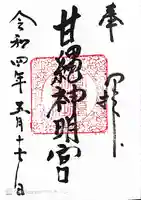 奉拝
甘縄神明宮
令和四年五月十七日